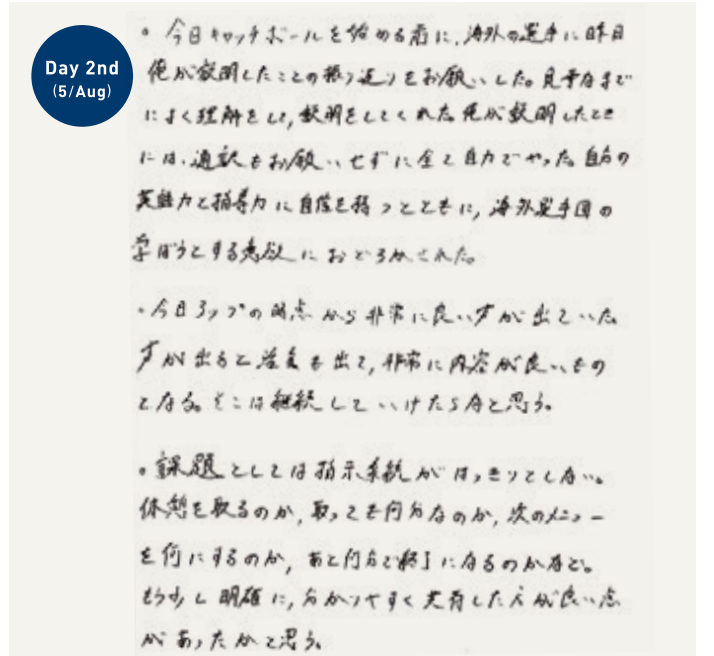 Day 2nd
(5/Aug)
・今日キャッチボールを始める前に、海外の選手に昨日
俺が説明したことの振り返りをお願いした。見事なまで
によく理解をして、説明をしてくれた。俺が説明したとき
には、通訳もお願いせずに全て自力でやった。自分の
英語力と指導力に自信を持つとともに、海外選手団の
学ぼうとする意欲におどろかされた。
・今日アップの時点から非常に良い声が出ていた。
声が出ると活気も出て、非常に内容が良いもの
となる。そこは継続していけたらなと思う。
・課題としては指示系統がはっきりとしない。
休憩を取るのか、取っても何分なのか、次のメニュー
を何にするのか、あと何分で終了になるのかなど。
もう少し明確に、分かりやすく共有した方が良い点
があったかと思う。